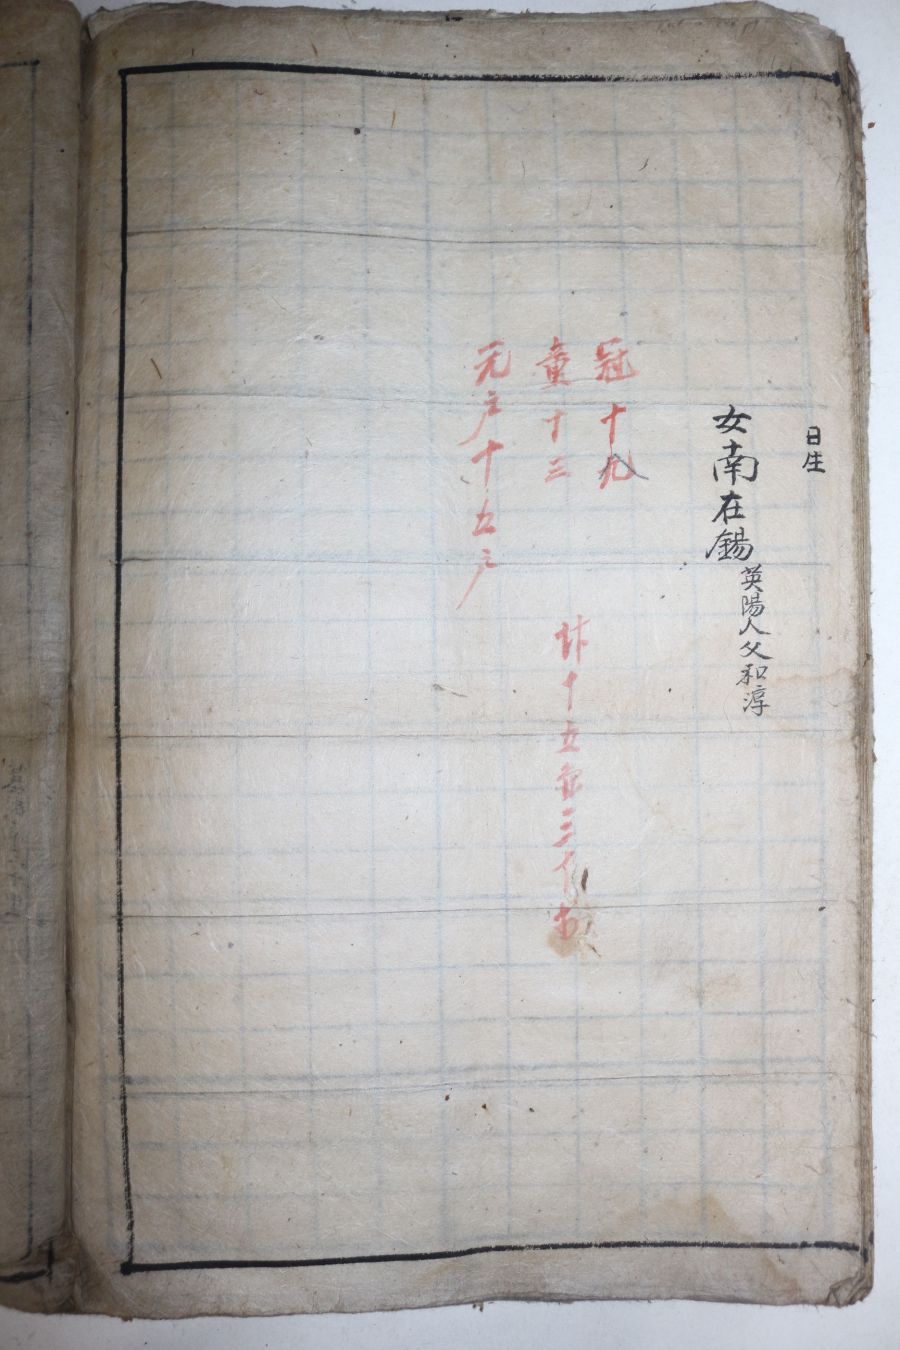 日生
女南在錫 英陽人父和淳
冠十九
童十三
元戶十五戶
十五
三